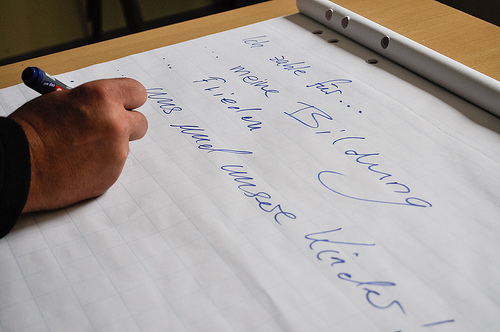 Ich zahle für...
... meine Bildung
... Frieden
... uns und unsere Kinder!